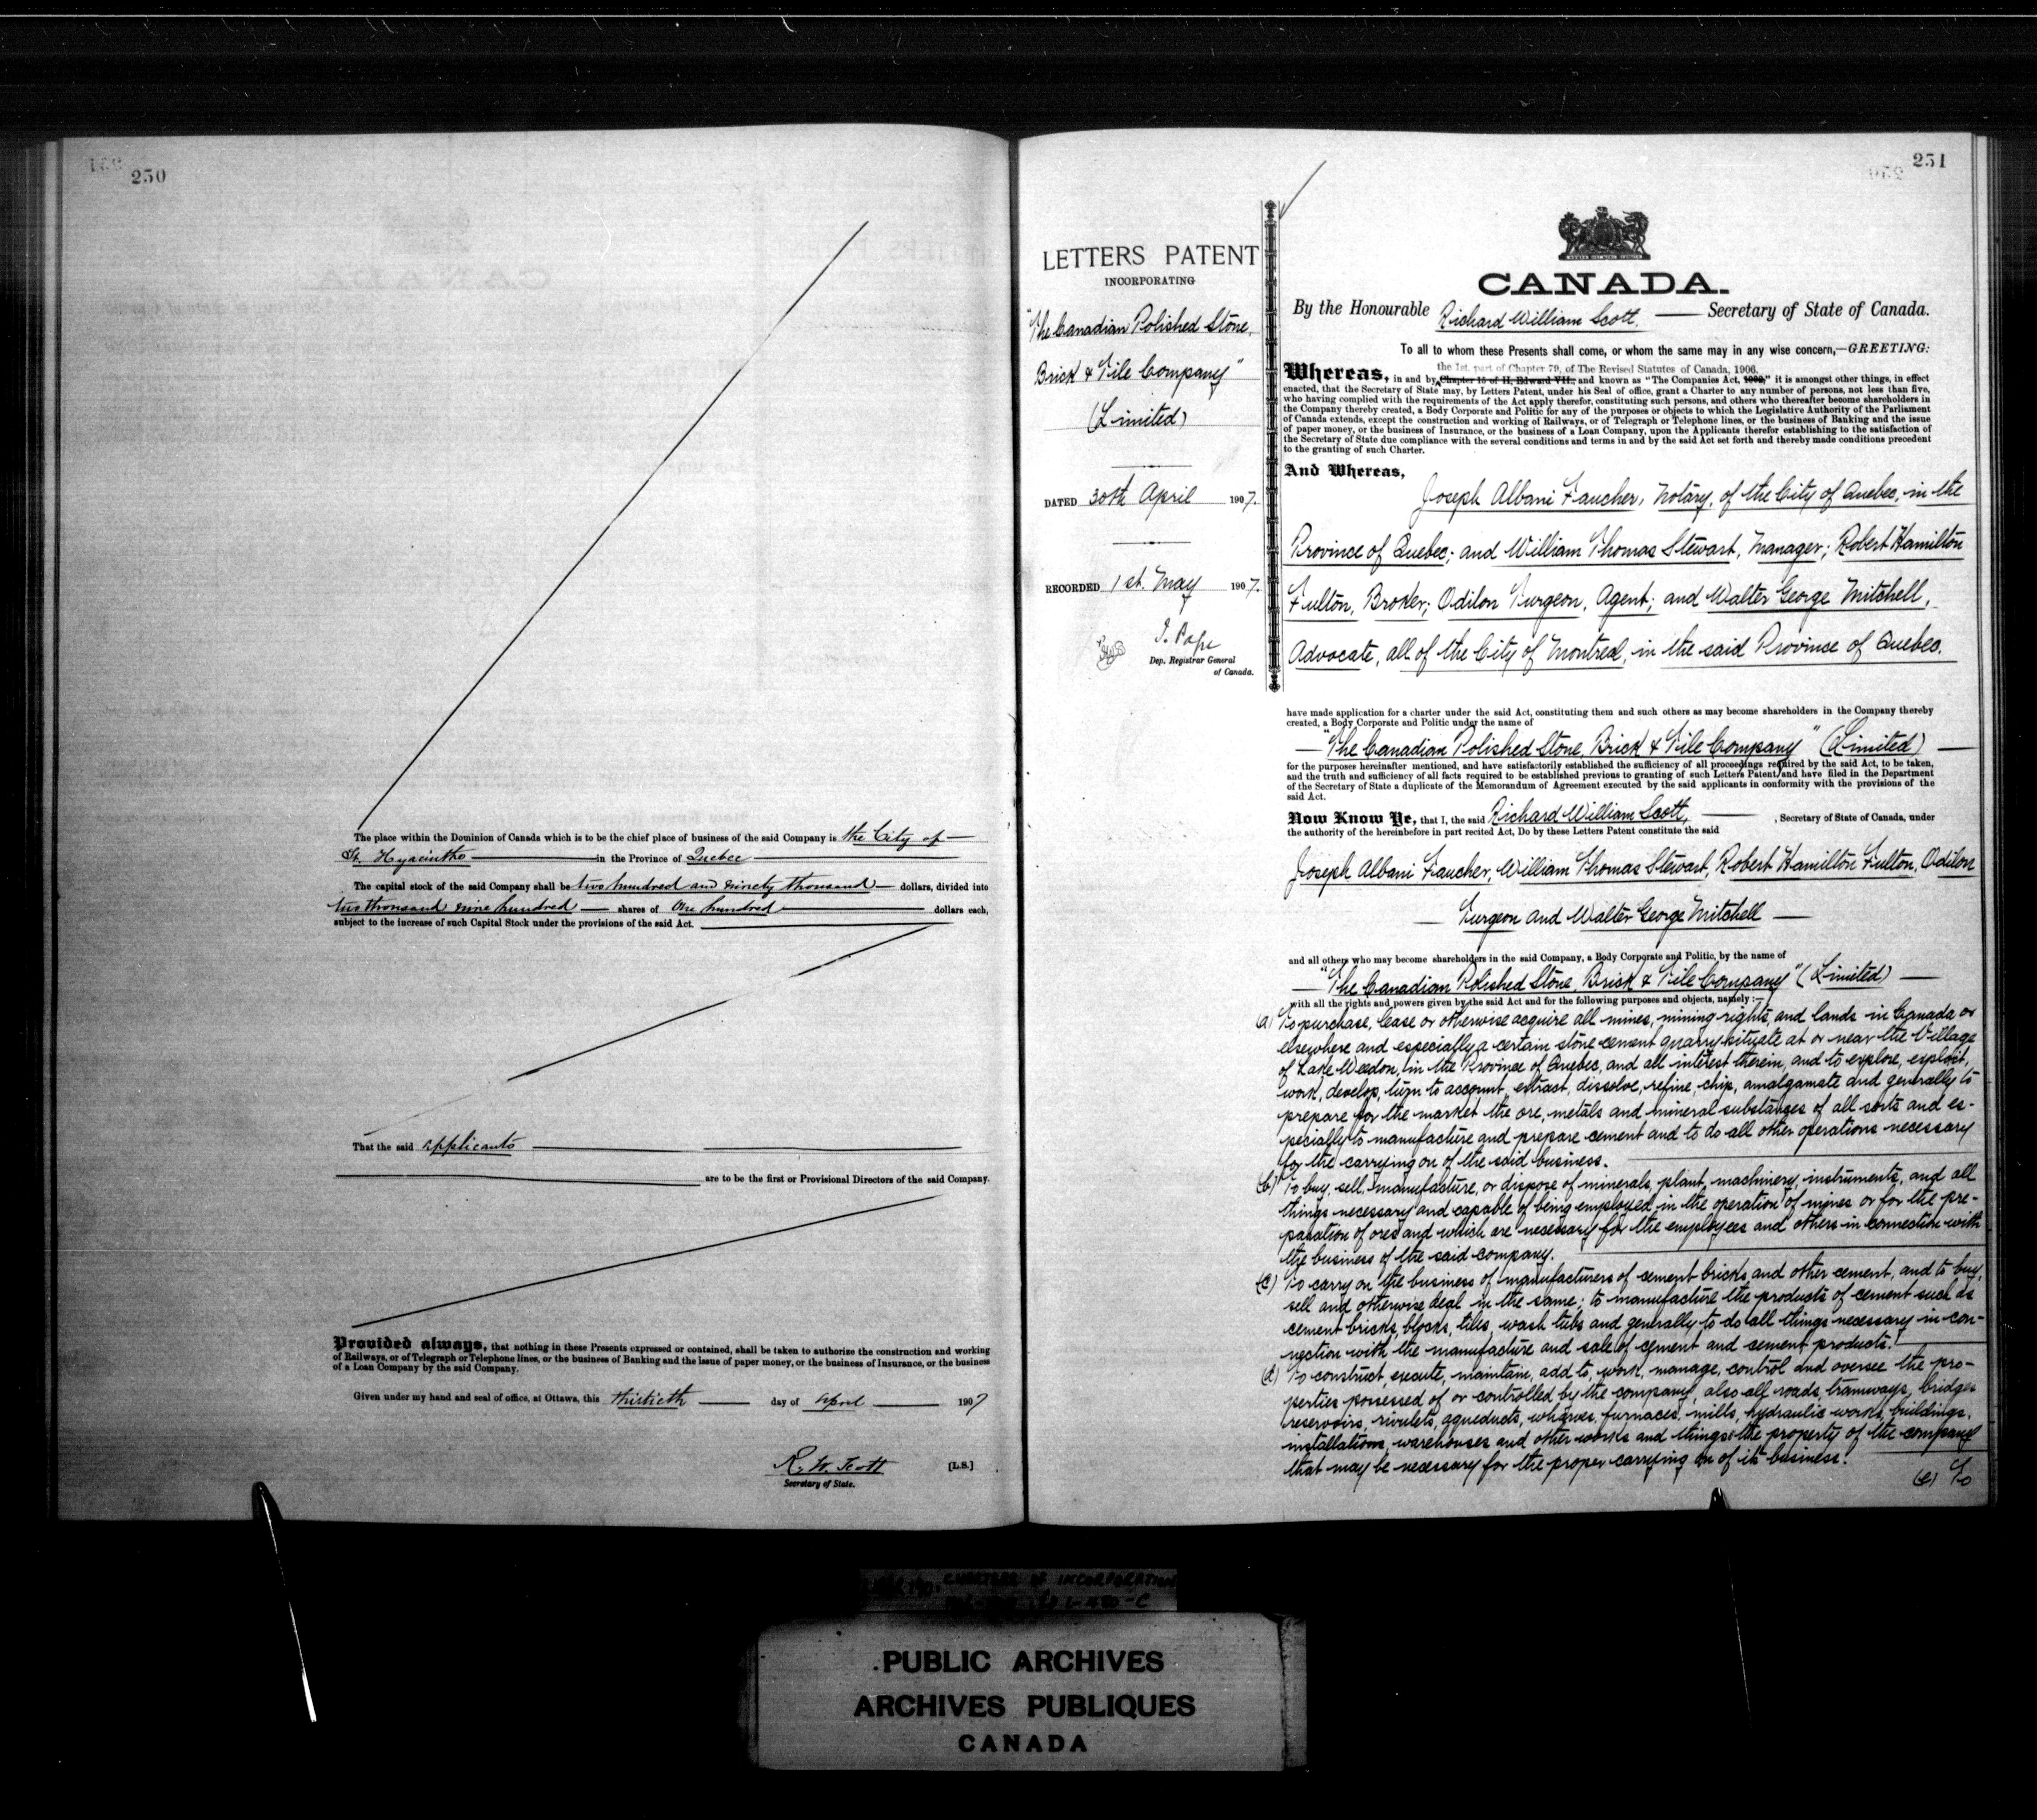 250
The place within the Dominion of Canada which is to be the chief place of business of the said Company is the City of
St. Hyacinthe in the Province of Quebec
The capital stock of the said Company shall be two hundred and ninety thousand dollars, divided into
two thousand nine hundred shares of One hundred dollars each,
subject to the increase of such Capital Stock under the provisions of the said Act.
That the said applicants
are to be the first or Provisional Directors of the said Company.
Provided always, that nothing in these Presents expressed or contained, shall be taken to authorize the construction and working
of Railways, or of Telegraph or Telephone lines, or the business of Banking and the issue of paper money, or the business of Insurance, or the business
of a Loan Company by the said Company.
Given under my hand and seal of office, at Ottawa, this thirtieth day of April 1907
R. W. Scott [L.S.]
Secretary of State.
251
LETTERS PATENT
INCORPORATING
"The Canadian Polished Stone,
Brick & Tile Company"
(Limited)
DATED 30th April 1907.
RECORDED 1st. May 1907.
J. Pope
Dep. Registrar General
of Canada.
CANADA.
By the Honourable Richard William Scott. Secretary of State of Canada.
To all to whom these Presents shall come, or whom the same may in any wise concern,—GREETING:
the 1st. part of Chapter 79, of The Revised Statutes of Canada, 1906.
Whereas, in and by Chapter 15 of II, Edward VII., and known as "The Companies Act, 1902," it is amongst other things, in effect
enacted, that the Secretary of State may, by Letters Patent, under his Seal of office, grant a Charter to any number of persons, not less than five,
who having complied with the requirements of the Act apply therefor, constituting such persons, and others who thereafter become shareholders in
the Company thereby created, a Body Corporate and Politic for any of the purposes or objects to which the Legislative Authority of the Parliament
of Canada extends, except the construction and working of Railways, or of Telegraph or Telephone lines, or the business of Banking and the issue
of paper money, or the business of Insurance, or the business of a Loan Company, upon the Applicants therefor establishing to the satisfaction of
the Secretary of State due compliance with the several conditions and terms in and by the said Act set forth and thereby made conditions precedent
to the granting of such Charter.
And Whereas,
Joseph Albani Faucher, Notary, of the City of Quebec, in the
Province of Quebec; and William Thomas Stewart, Manager; Robert Hamilton
Fulton, Broker; Odilon Turgeon, Agent; and Walter George Mitchell,
Advocate, all of the City of Montreal, in the said Province of Quebec.
have made application for a charter under the said Act, constituting them and such others as may become shareholders in the Company thereby
created, a Body Corporate and Politic under the name of
"The Canadian Polished Stone, Brick & Tile Company" (Limited)
for the purposes hereinafter mentioned, and have satisfactorily established the sufficiency of all proceedings required by the said Act, to be taken,
and the truth and sufficiency of all facts required to be established previous to granting of such Letters Patent, and have filed in the Department
of the Secretary of State a duplicate of the Memorandum of Agreement executed by the said applicants in conformity with the provisions of the
said Act.
Now Know Ye, that I, the said Richard William Scott, , Secretary of State of Canada, under
the authority of the hereinbefore in part recited Act, Do by these Letters Patent constitute the said
Joseph Albani Faucher, William Thomas Stewart, Robert Hamilton Fulton, Odilon
Turgeon and Walter George Mitchell
and all others who may become shareholders in the said Company, a Body Corporate and Politic, by the name of
"The Canadian Polished Stone, Brick & Tile Company" (Limited)
with all the rights and powers given by the said Act and for the following purposes and objects, namely:—
(a) To purchase, lease or otherwise acquire all mines, mining rights, and lands in Canada or
elsewhere and especially a certain stone cement quarry situate at or near the Village
of Lake Weedon, in the Province of Quebec, and all interest therein, and to explore, exploit,
work, develop, turn to account, extract, dissolve, refine, chip, amalgamate and generally to
prepare for the market the ore, metals and mineral substances of all sorts and es-
pecially to manufacture and prepare cement and to do all other operations necessary
for the carrying on of the said business.
(b) To buy, sell, manufacture, or dispose of minerals, plant, machinery, instruments, and all
things necessary and capable of being employed in the operation of mines or for the pre-
paration of ores and which are necessary for the employees and others in connection with
the business of the said company.
(c) To carry on the business of manufacturers of cement bricks and other cement, and to buy,
sell and otherwise deal in the same; to manufacture the products of cement such as
cement bricks, blocks, tiles, wash tubs and generally to do all things necessary in con-
nection with the manufacture and sale of cement and cement products.
(d) To construct, execute, maintain, add to, work, manage, control and oversee the pro-
perties possessed of or controlled by the company, also all roads, tramways, bridges
reservoirs, rivulets, aqueducts, wharves, furnaces, mills, hydraulic works, buildings,
installations, warehouses and other works and things the property of the company
that may be necessary for the proper carrying on of its business.
(e) To
CHARTERS OF INCORPORATION
PUBLIC ARCHIVES
ARCHIVES PUBLIQUES
CANADA